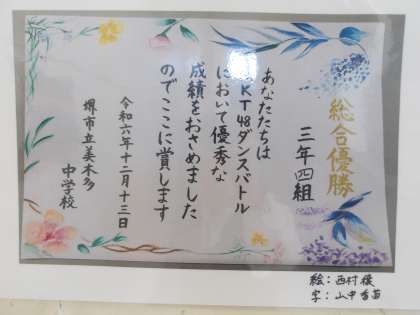 総合優勝
三年四組
あなたたちは
KT48ダンスバトル
において優秀な
成績をおさめました
のでここに賞します
令和六年十二月十三日
堺市立美木多
中学校
絵：西村
字：山中